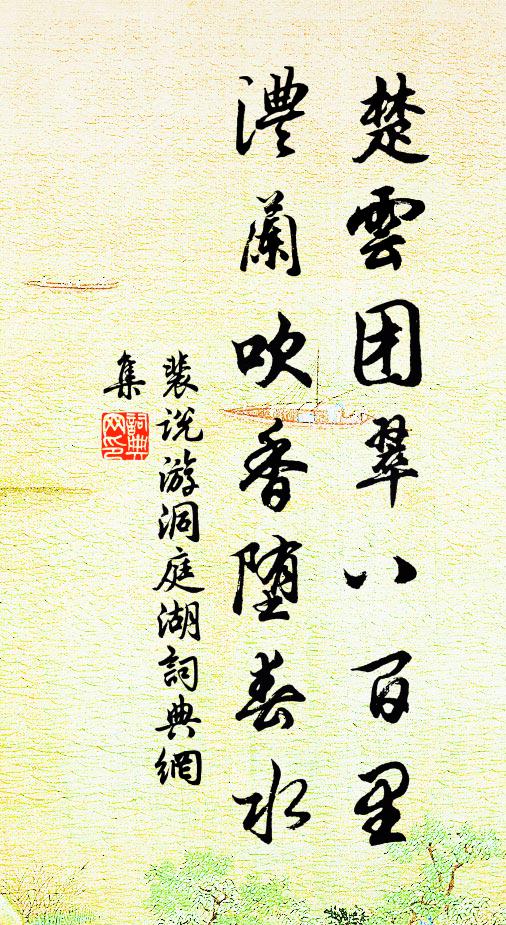 楚雲团翠八百里
澧蘭吹香堕春水
裴说游洞庭湖詞典網
集
詞典
网印